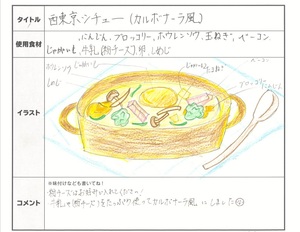 タイトル
西東京シチュー(カルボナーラ風)
使用食材
にんじん、ブロッコリー、ホウレンソウ、玉ねぎ、ベーコン
じゃがいも、牛乳(粉チーズ)、卵、しめじ
イラスト
ホウレンソウ
じゃがいも
にんじん
玉ねぎ
ベーコン
ブロッコリー
しめじ
コメント
※味付けなども書いてね!
粉チーズはお好みで入れてください!
牛乳や粉チーズをたっぷり使ってカルボナーラ風にしました